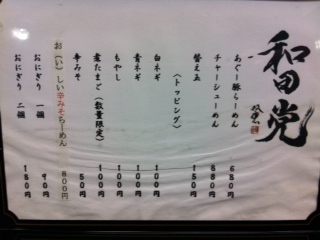 和田党
あぐー豚らーめん 680円
チャーシューめん 880円
替え玉 150円
(トッピング)
白ネギ 100円
青ネギ 100円
もやし 100円
煮たまご(数量限定) 100円
辛みそ 50円
お(い)しい辛みそらーめん 800円
おにぎり 一個 90円
おにぎり 二個 180円